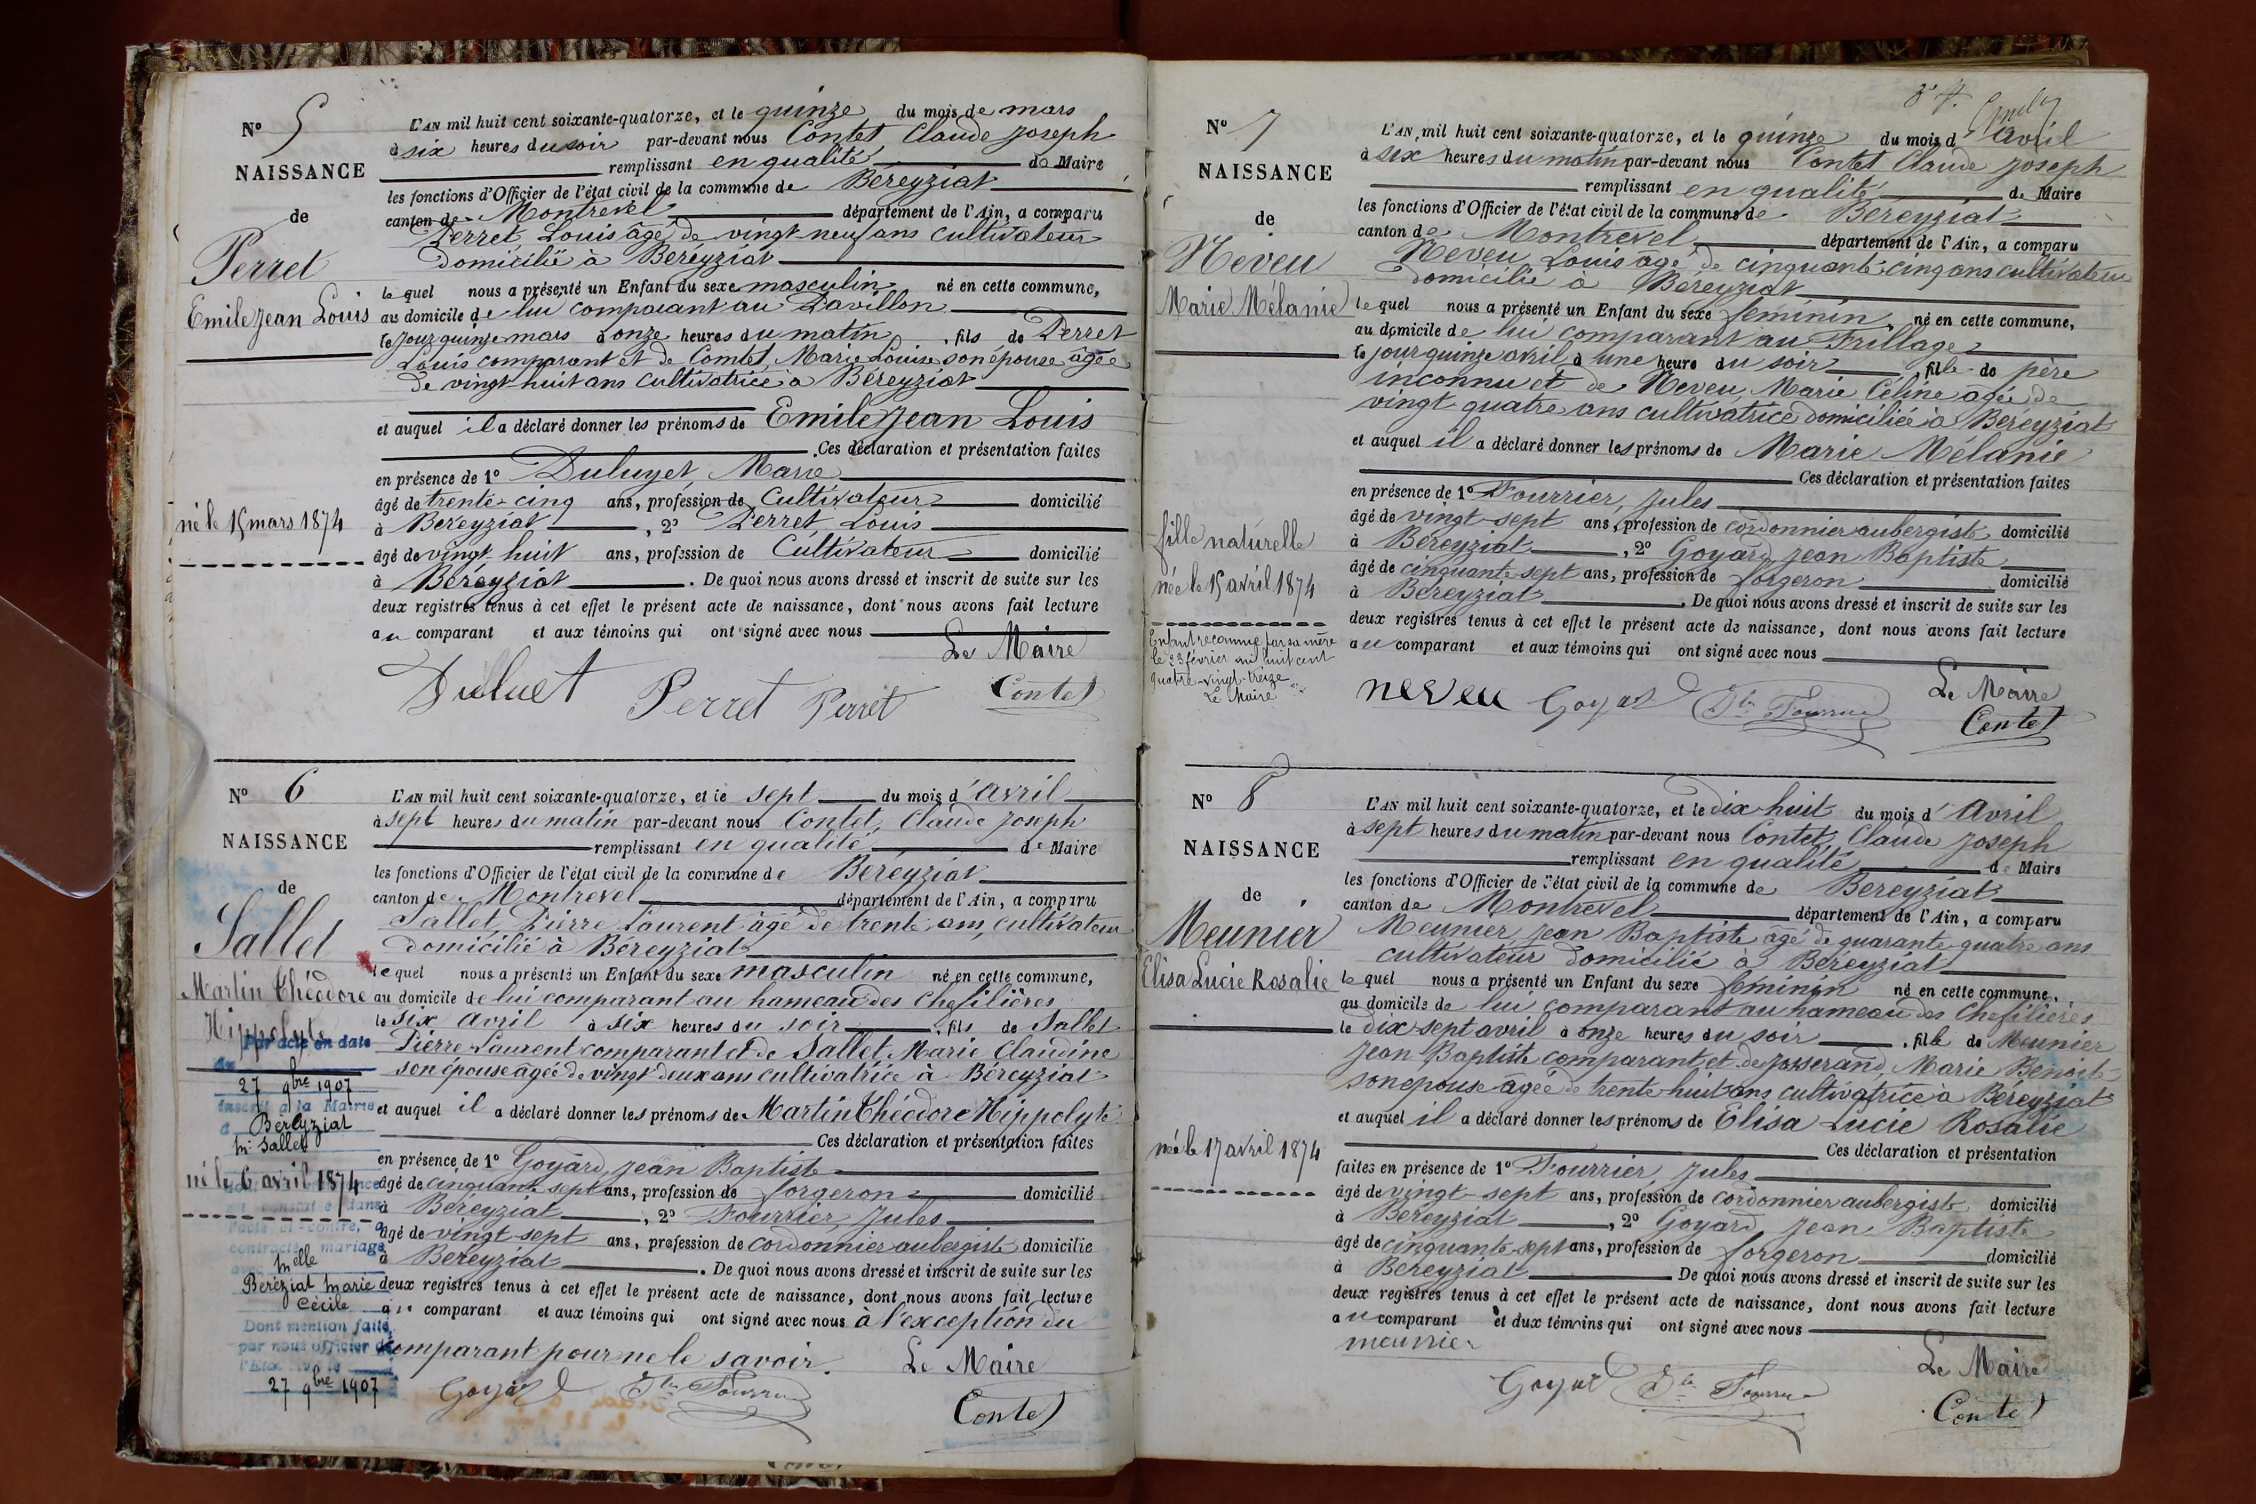 Nº 5
NAISSANCE
de
Perret
Emile Jean Louis
né le 15 mars 1874
L'AN mil huit cent soixante-quatorze, et le quinze du mois de mars
à six heures du soir par-devant nous Contet Claude Joseph
remplissant en qualité de Maire
les fonctions d'Officier de l'état civil de la commune de Béréyziat
canton de Montrevel département de l'Ain, a comparu
Perret, Louis âgé de vingt neuf ans cultivateur
domicilié à Béréyziat
lequel nous a présenté un Enfant du sexe masculin né en cette commune,
au domicile de lui comparant au Pavillon
le jour quinze mars à onze heures du matin, fils de Perret
Louis comparant et de Comtet, Marie Louise son épouse âgée
de vingt huit ans cultivatrice à Béréyziat
et auquel il a déclaré donner les prénoms de Emile Jean Louis
Ces déclaration et présentation faites
en présence de 1º Duluyet, Marie
âgé de trente-cinq ans, profession de Cultivateur domicilié
à Béréyziat, 2º Perret, Louis
âgé de vingt-huit ans, profession de Cultivateur domicilié
à Béréyziat. De quoi nous avons dressé et inscrit de suite sur les
deux registres tenus à cet effet le présent acte de naissance, dont nous avons fait lecture
au comparant et aux témoins qui ont signé avec nous
Le Maire
Duluet Perret Perret Contet
Nº 6
NAISSANCE
de
Sallet
Martin Théodore
Hippolyte
Par acte en date
du
27 9bre 1907
inscrit à la Mairie
à Béréyziat
Mr Sallet
né le 6 avril 1874
contracté mariage
Melle
Béréziat Marie
Cécile
Dont mention faite
par nous officier de
l'Etat
27 9bre 1907
L'AN mil huit cent soixante-quatorze, et le sept du mois d'avril
à sept heures du matin par-devant nous Contet, Claude Joseph
remplissant en qualité de Maire
les fonctions d'Officier de l'état civil de la commune de Béréyziat
canton de Montrevel département de l'Ain, a comparu
Sallet, Pierre Laurent âgé de trente ans, cultivateur
domicilié à Béréyziat
lequel nous a présenté un Enfant du sexe masculin né en cette commune,
au domicile de lui comparant au hameau des Chefilières
le six avril à six heures du soir, fils de Sallet
Pierre Laurent comparant et de Sallet, Marie Claudine
son épouse âgée de vingt deux ans cultivatrice à Béréyziat
et auquel il a déclaré donner les prénoms de Martin Théodore Hippolyte
Ces déclaration et présentation faites
en présence de 1º Goyard, Jean Baptiste
âgé de cinquante sept ans, profession de forgeron domicilié
à Béréyziat, 2º Fourrier, Jules
âgé de vingt sept ans, profession de cordonnier aubergiste domicilié
à Béréyziat. De quoi nous avons dressé et inscrit de suite sur les
deux registres tenus à cet effet le présent acte de naissance, dont nous avons fait lecture
au comparant et aux témoins qui ont signé avec nous à l'exception du
comparant pour ne le savoir. Le Maire
Goyard Jles Fourrier Contet
Nº 7
NAISSANCE
de
Neveu
Marie Mélanie
fille naturelle
née le 15 avril 1874
Enfant reconnue par sa mère
le 23 février mil huit cent
quatre-vingt-treize
Le Maire
L'AN mil huit cent soixante-quatorze, et le quinze du mois d'avril
à six heures du matin par-devant nous Contet Claude Joseph
remplissant en qualité de Maire
les fonctions d'Officier de l'état civil de la commune de Béréyziat
canton de Montrevel département de l'Ain, a comparu
Neveu, Louis âgé de cinquante-cinq ans cultivateur
domicilié à Béréyziat
lequel nous a présenté un Enfant du sexe féminin, né en cette commune,
au domicile de lui comparant au Frillage
le jour quinze avril à une heure du soir, fille de père
inconnu et de Neveu, Marie Céline âgée de
vingt-quatre ans cultivatrice domiciliée à Béréyziat
et auquel il a déclaré donner les prénoms de Marie Mélanie
Ces déclaration et présentation faites
en présence de 1º Fourrier, Jules
âgé de vingt-sept ans, profession de cordonnier aubergiste domicilié
à Béréyziat, 2º Goyard Jean Baptiste
âgé de cinquante-sept ans, profession de forgeron domicilié
à Béréyziat. De quoi nous avons dressé et inscrit de suite sur les
deux registres tenus à cet effet le présent acte de naissance, dont nous avons fait lecture
au comparant et aux témoins qui ont signé avec nous
Le Maire
neveu Goyard Jles Fourrier Contet
Nº 8
NAISSANCE
de
Meunier
Elisa Lucie Rosalie
né le 17 avril 1874
L'AN mil huit cent soixante-quatorze, et le dix-huit du mois d'avril
à sept heures du matin par-devant nous Contet, Claude Joseph
remplissant en qualité de Maire
les fonctions d'Officier de l'état civil de la commune de Béréyziat
canton de Montrevel département de l'Ain, a comparu
Meunier, Jean Baptiste âgé de quarante-quatre ans
cultivateur domicilié à Béréyziat
lequel nous a présenté un Enfant du sexe féminin né en cette commune,
au domicile de lui comparant au hameau des Chefilières
le dix sept avril à onze heures du soir, fille de Meunier
Jean Baptiste comparant et de Josserand, Marie Benoite
son épouse âgée de trente-huit ans cultivatrice à Béréyziat
et auquel il a déclaré donner les prénoms de Elisa Lucie Rosalie
Ces déclaration et présentation
faites en présence de 1º Fourrier, Jules
âgé de vingt-sept ans, profession de cordonnier aubergiste domicilié
à Béréyziat, 2º Goyard, Jean Baptiste
âgé de cinquante-sept ans, profession de forgeron domicilié
à Béréyziat De quoi nous avons dressé et inscrit de suite sur les
deux registres tenus à cet effet le présent acte de naissance, dont nous avons fait lecture
au comparant et dux témoins qui ont signé avec nous
meunier Le Maire
Goyard Jles Fourrier Contet